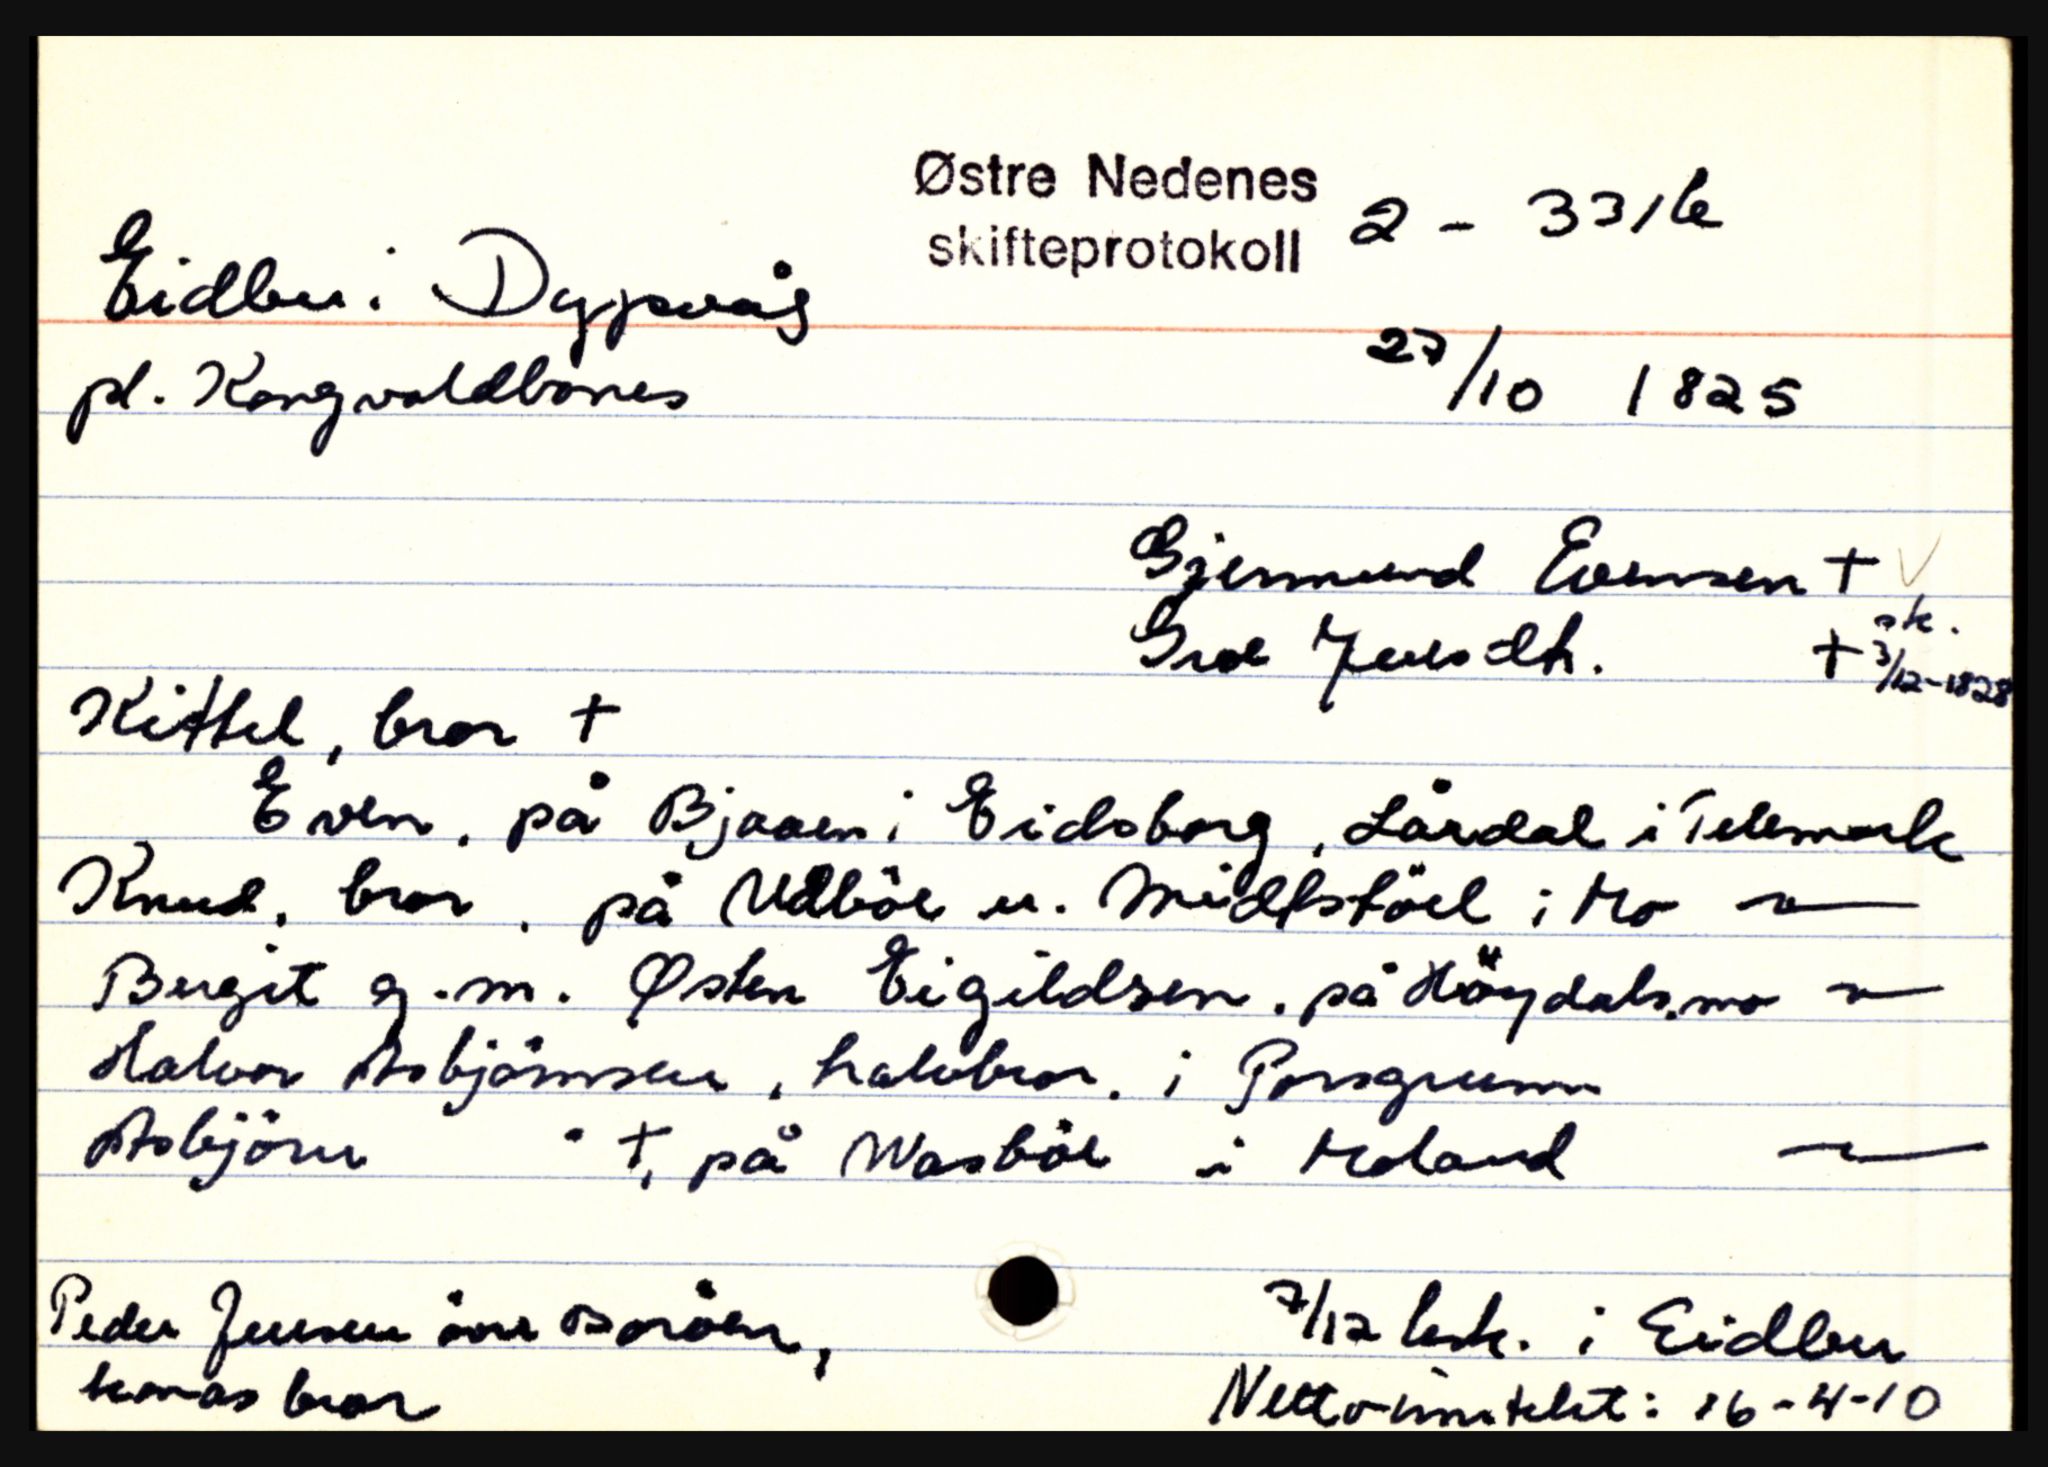 Østre Nedenes
skifteprotokoll 2 - 331b
Eidbu i Dypvåg
pl. Kongvoldbones 27/10 1825
Gjermund Evensen + V
Groe Jensdh. + sk. 3/12-1828
Kittel, bror +
Even, på Bjaaen i Eidsborg, Lårdal i Telemark
Knud, bror, på Udböe u. Midtstöel i Mo —"—
Bergit g.m. Østen Eigildsen, på Höydalsmo —"—
Halvor Asbjörnsen, halvbror, i Porsgrunn
Asbjörn " +, på Wasböe i Moland —"—
Peder Jensen övre Boröen,
konas bror
7/12 besk. i Eidbu
Netto inntekt: 16-4-10